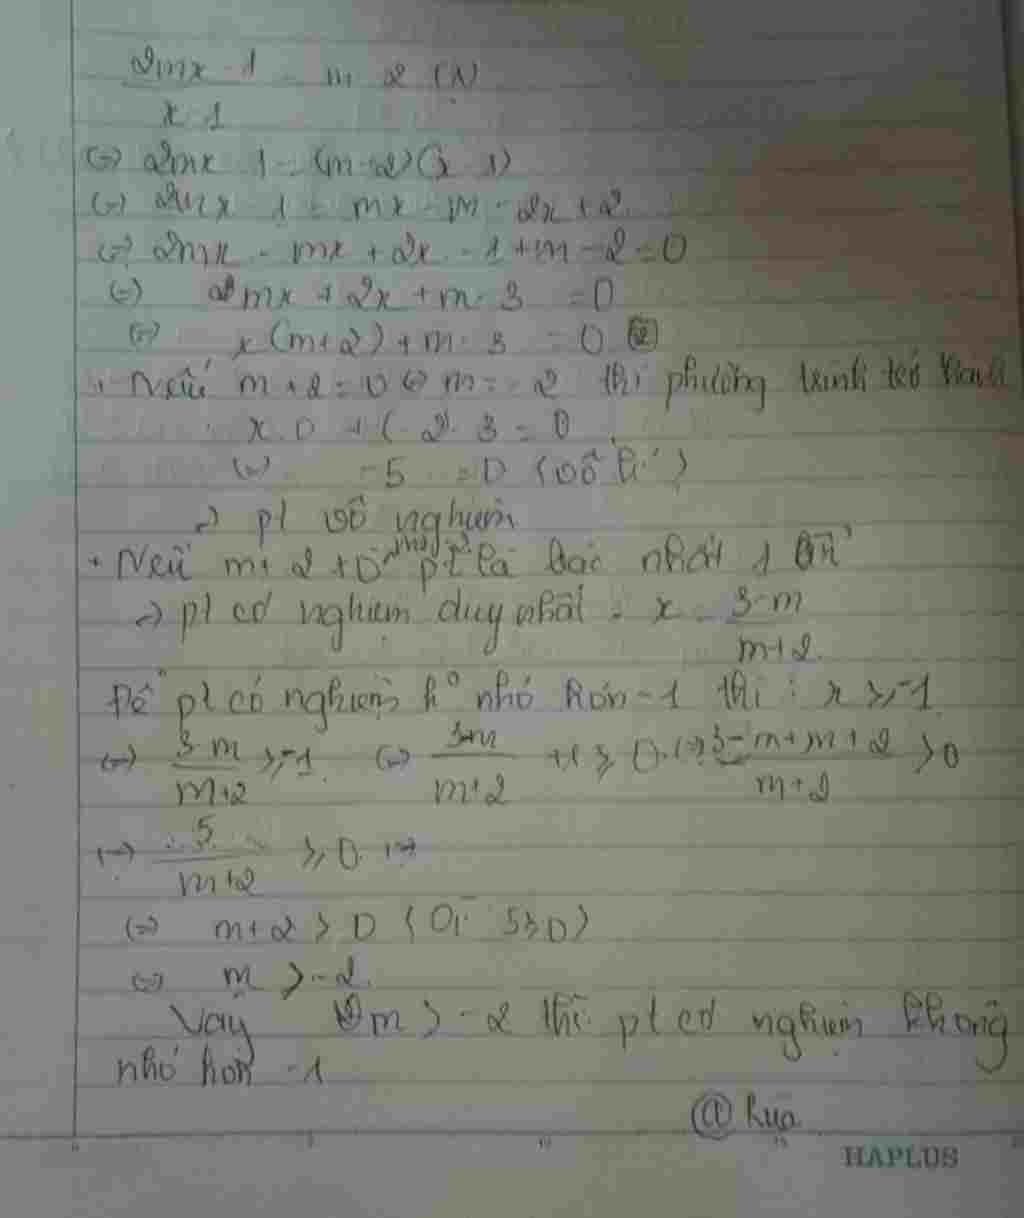 2mx - 1 / x - 1 = m - 2 (1)
(=) 2mx - 1 = (m-2)(x-1)
(=) 2mx - 1 = mx - m - 2x + 2
(=) 2mx - mx + 2x - 1 + m - 2 = 0
(=) mx + 2x + m - 3 = 0
(=) x(m+2) + m - 3 = 0 (2)
+ Nếu m + 2 = 0 (=) m = -2 thì phương trình trở thành
x.0 + (-2) - 3 = 0
(=) -5 = 0 (vô lí)
=> pt vô nghiệm
+ Nếu m + 2 ≠ 0 thì pt là bậc nhất 1 ẩn
=> pt có nghiệm duy nhất : x = 3-m / m+2
Để pt có nghiệm k° nhỏ hơn -1 thì : x ⩾ -1
(=) 3-m / m+2 ⩾ -1 (=) 3-m / m+2 + 1 ⩾ 0 (=) 3-m+m+2 / m+2 ⩾ 0
(=) 5 / m+2 ⩾ 0
(=) m + 2 > 0 (Vì 5 > 0)
(=) m > -2
Vậy m > -2 thì pt có nghiệm không
nhỏ hơn -1
@ Rùa
HAPLUS